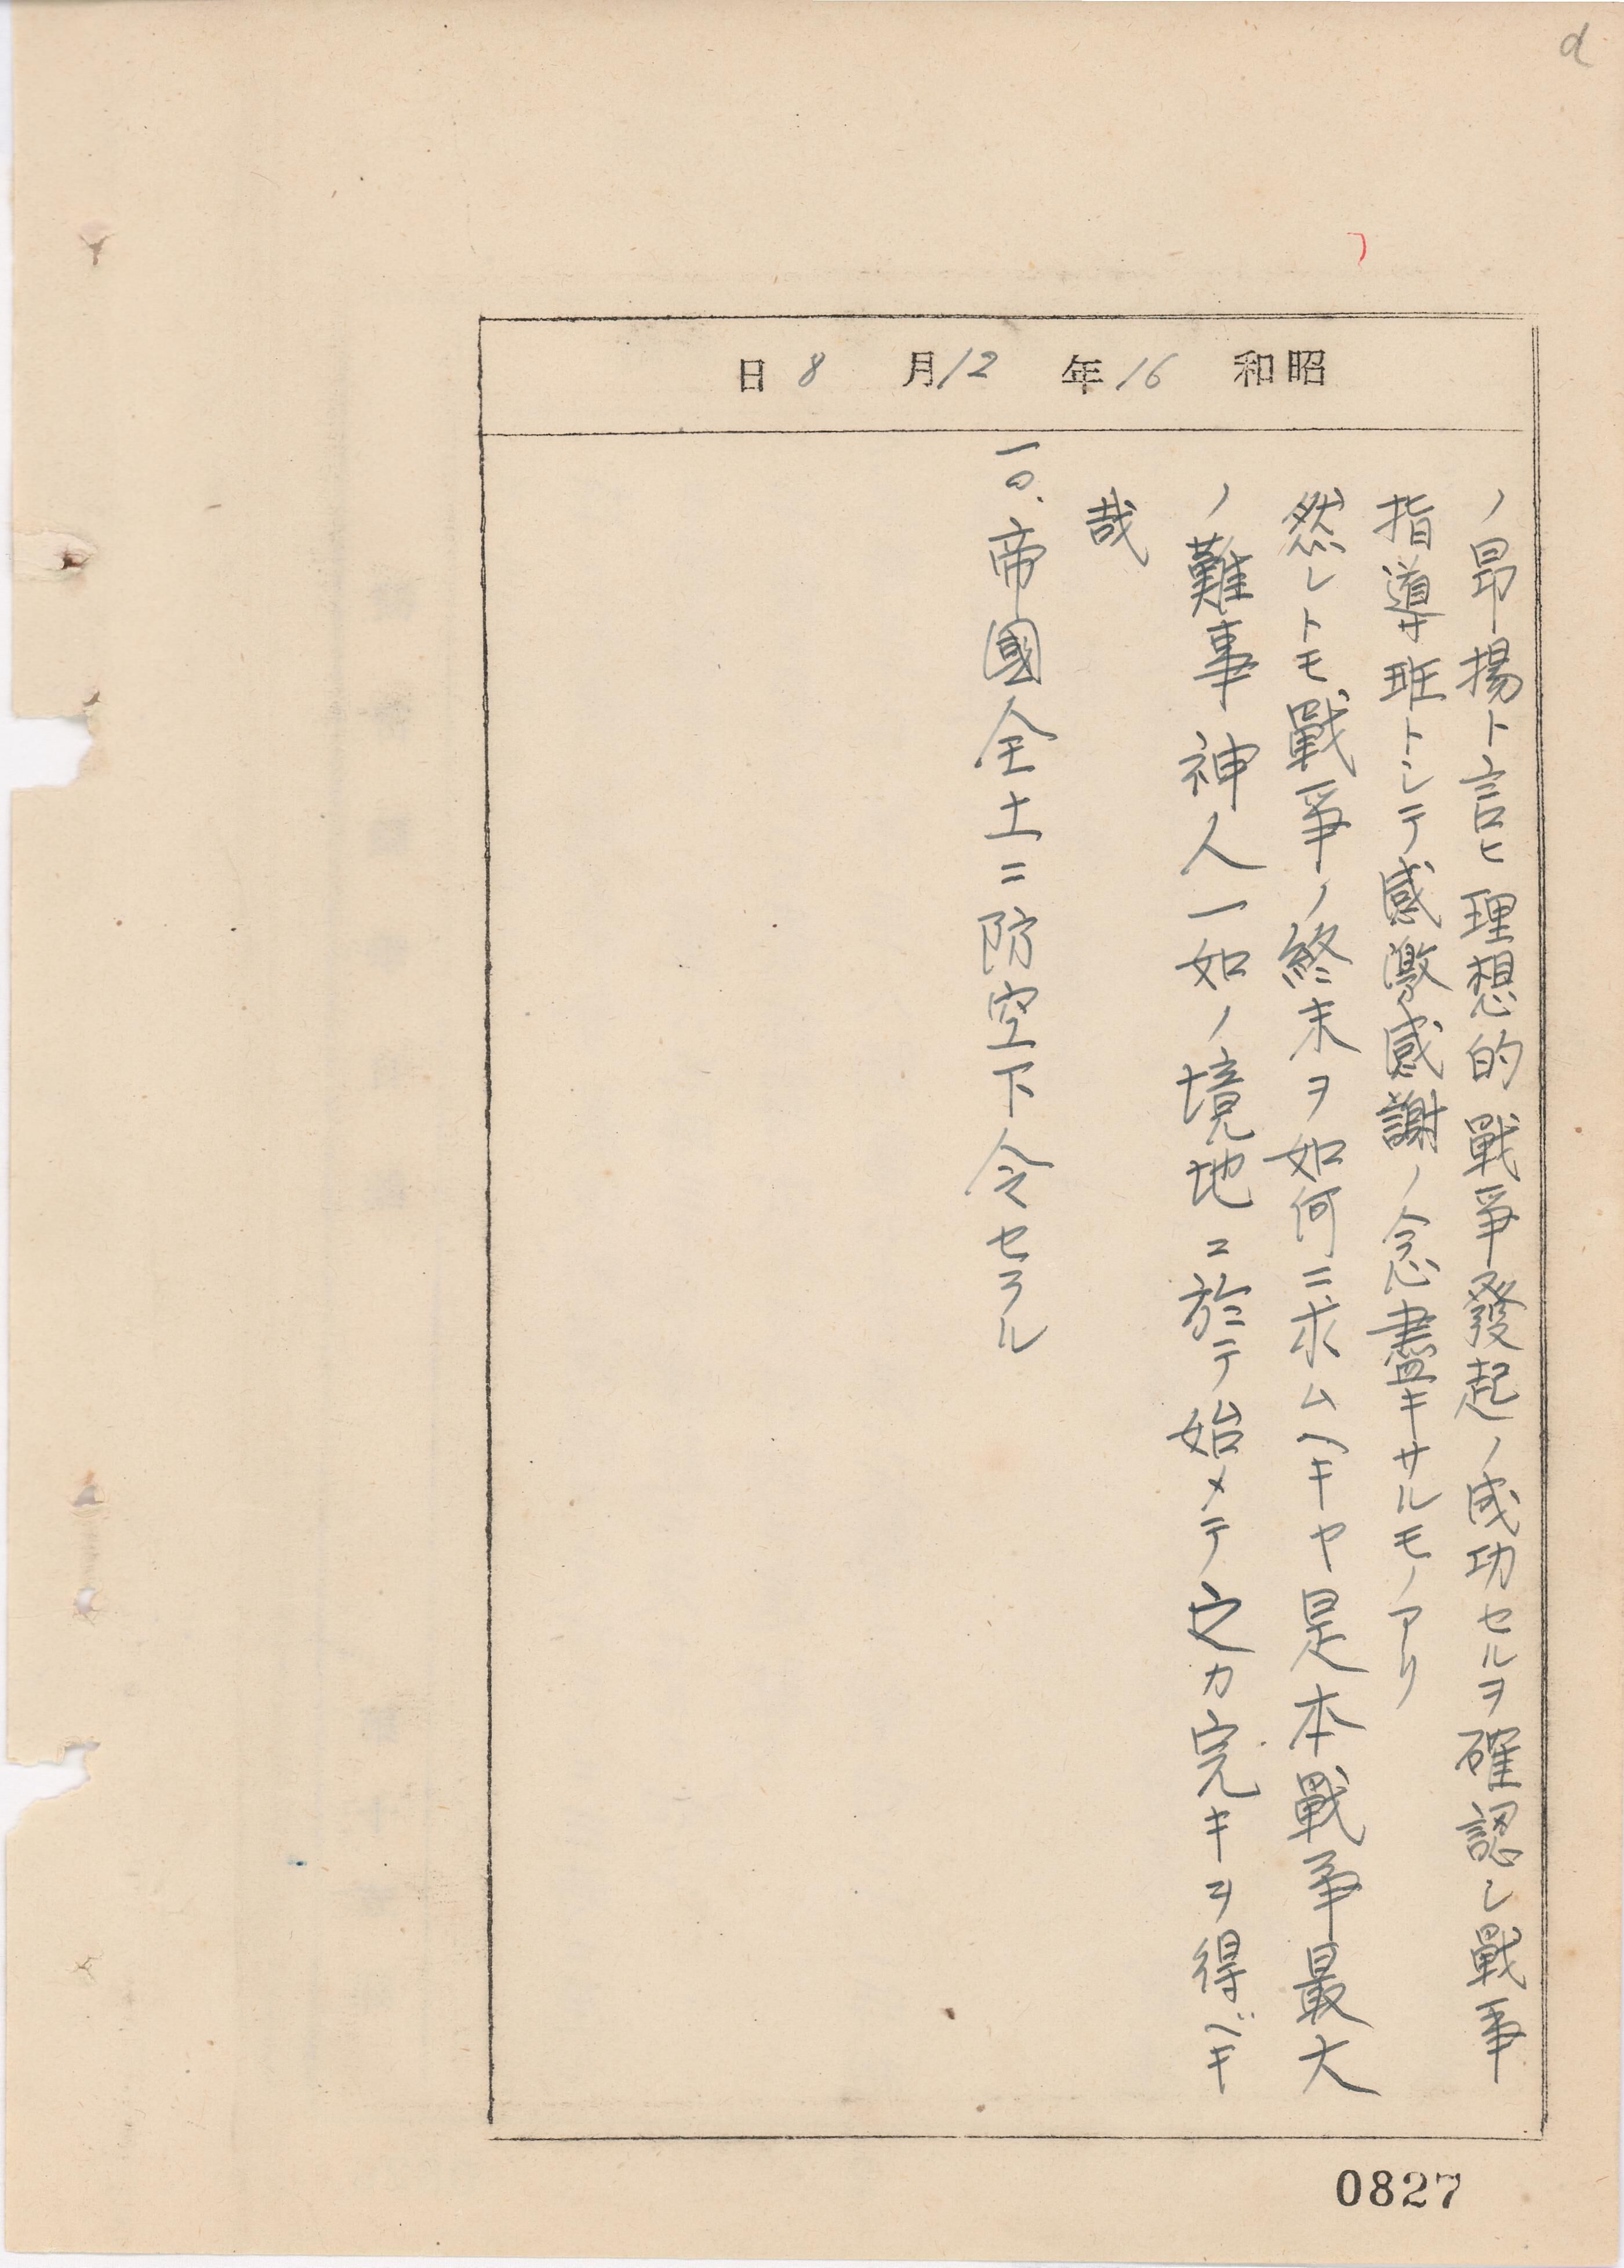 d
昭和16年12月8日
ノ昂揚ト言ヒ理想的戰爭發起ノ成功セルヲ確認シ戰爭
指導班トシテ感激感謝ノ念盡キサルモノアリ
然レトモ戰爭ノ終末ヲ如何ニ求ムヘキヤ是本戰爭最大
ノ難事神人一如ノ境地ニ於テ始メテ之カ完キヲ得ベキ
哉
一〇、帝國全土ニ防空下令セラル
0827